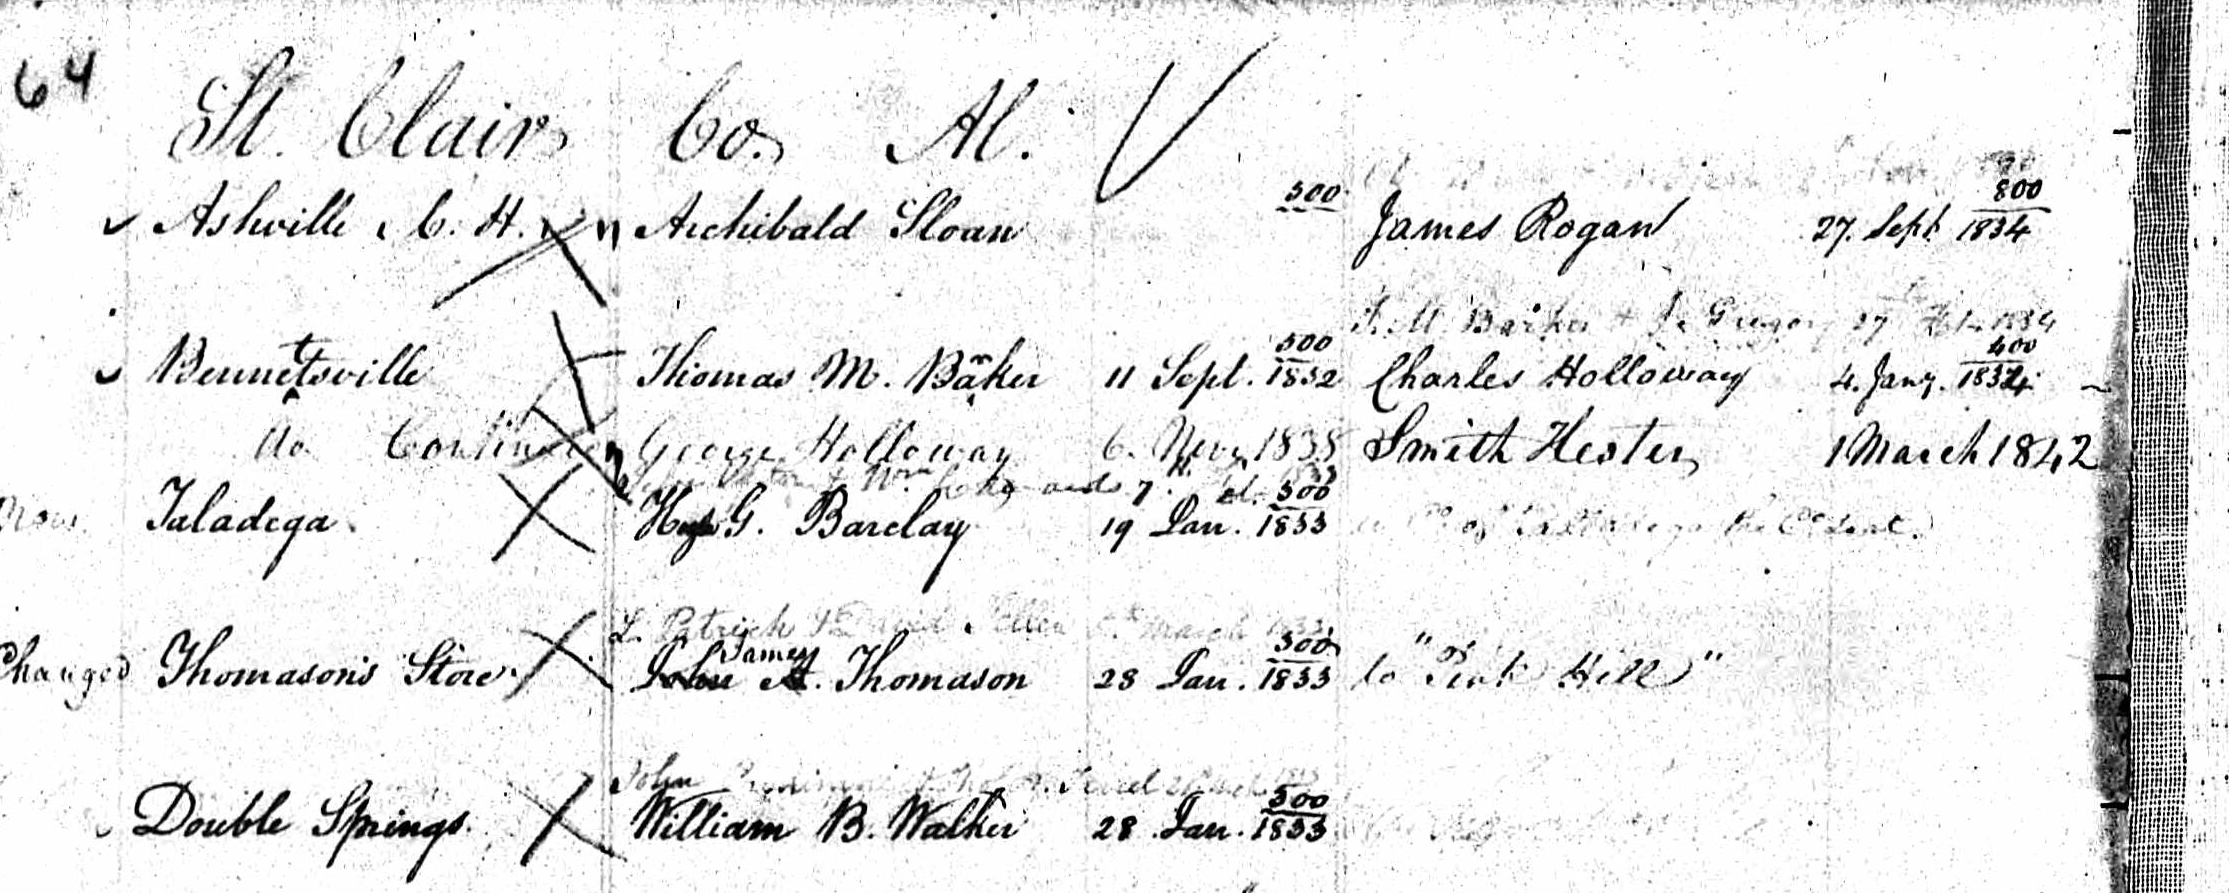 64
St. Clair Co. Al.
500 800
Ashville C. H. Archibald Sloan James Rogan 27. Sept 1834
T. M. Barker & J. Gregory 27 1834
500 400
Bennettsville Thomas M. Baker 11 Sept. 1832 Charles Holloway 4. Jany. 1834
do Continued George Holloway 6. Nov. 1838 Smith Hester 1 March 1842
& Wm 7.
500
Now Taladega Hugh G. Barclay 19 Jan. 1833 of the
L. Patrick & Allen March 1833
James 500
Changed Thomason's Store John A. Thomason 28 Jan. 1833 to "Pink Hill"
John
500
Double Springs William B. Walker 28 Jan. 1833